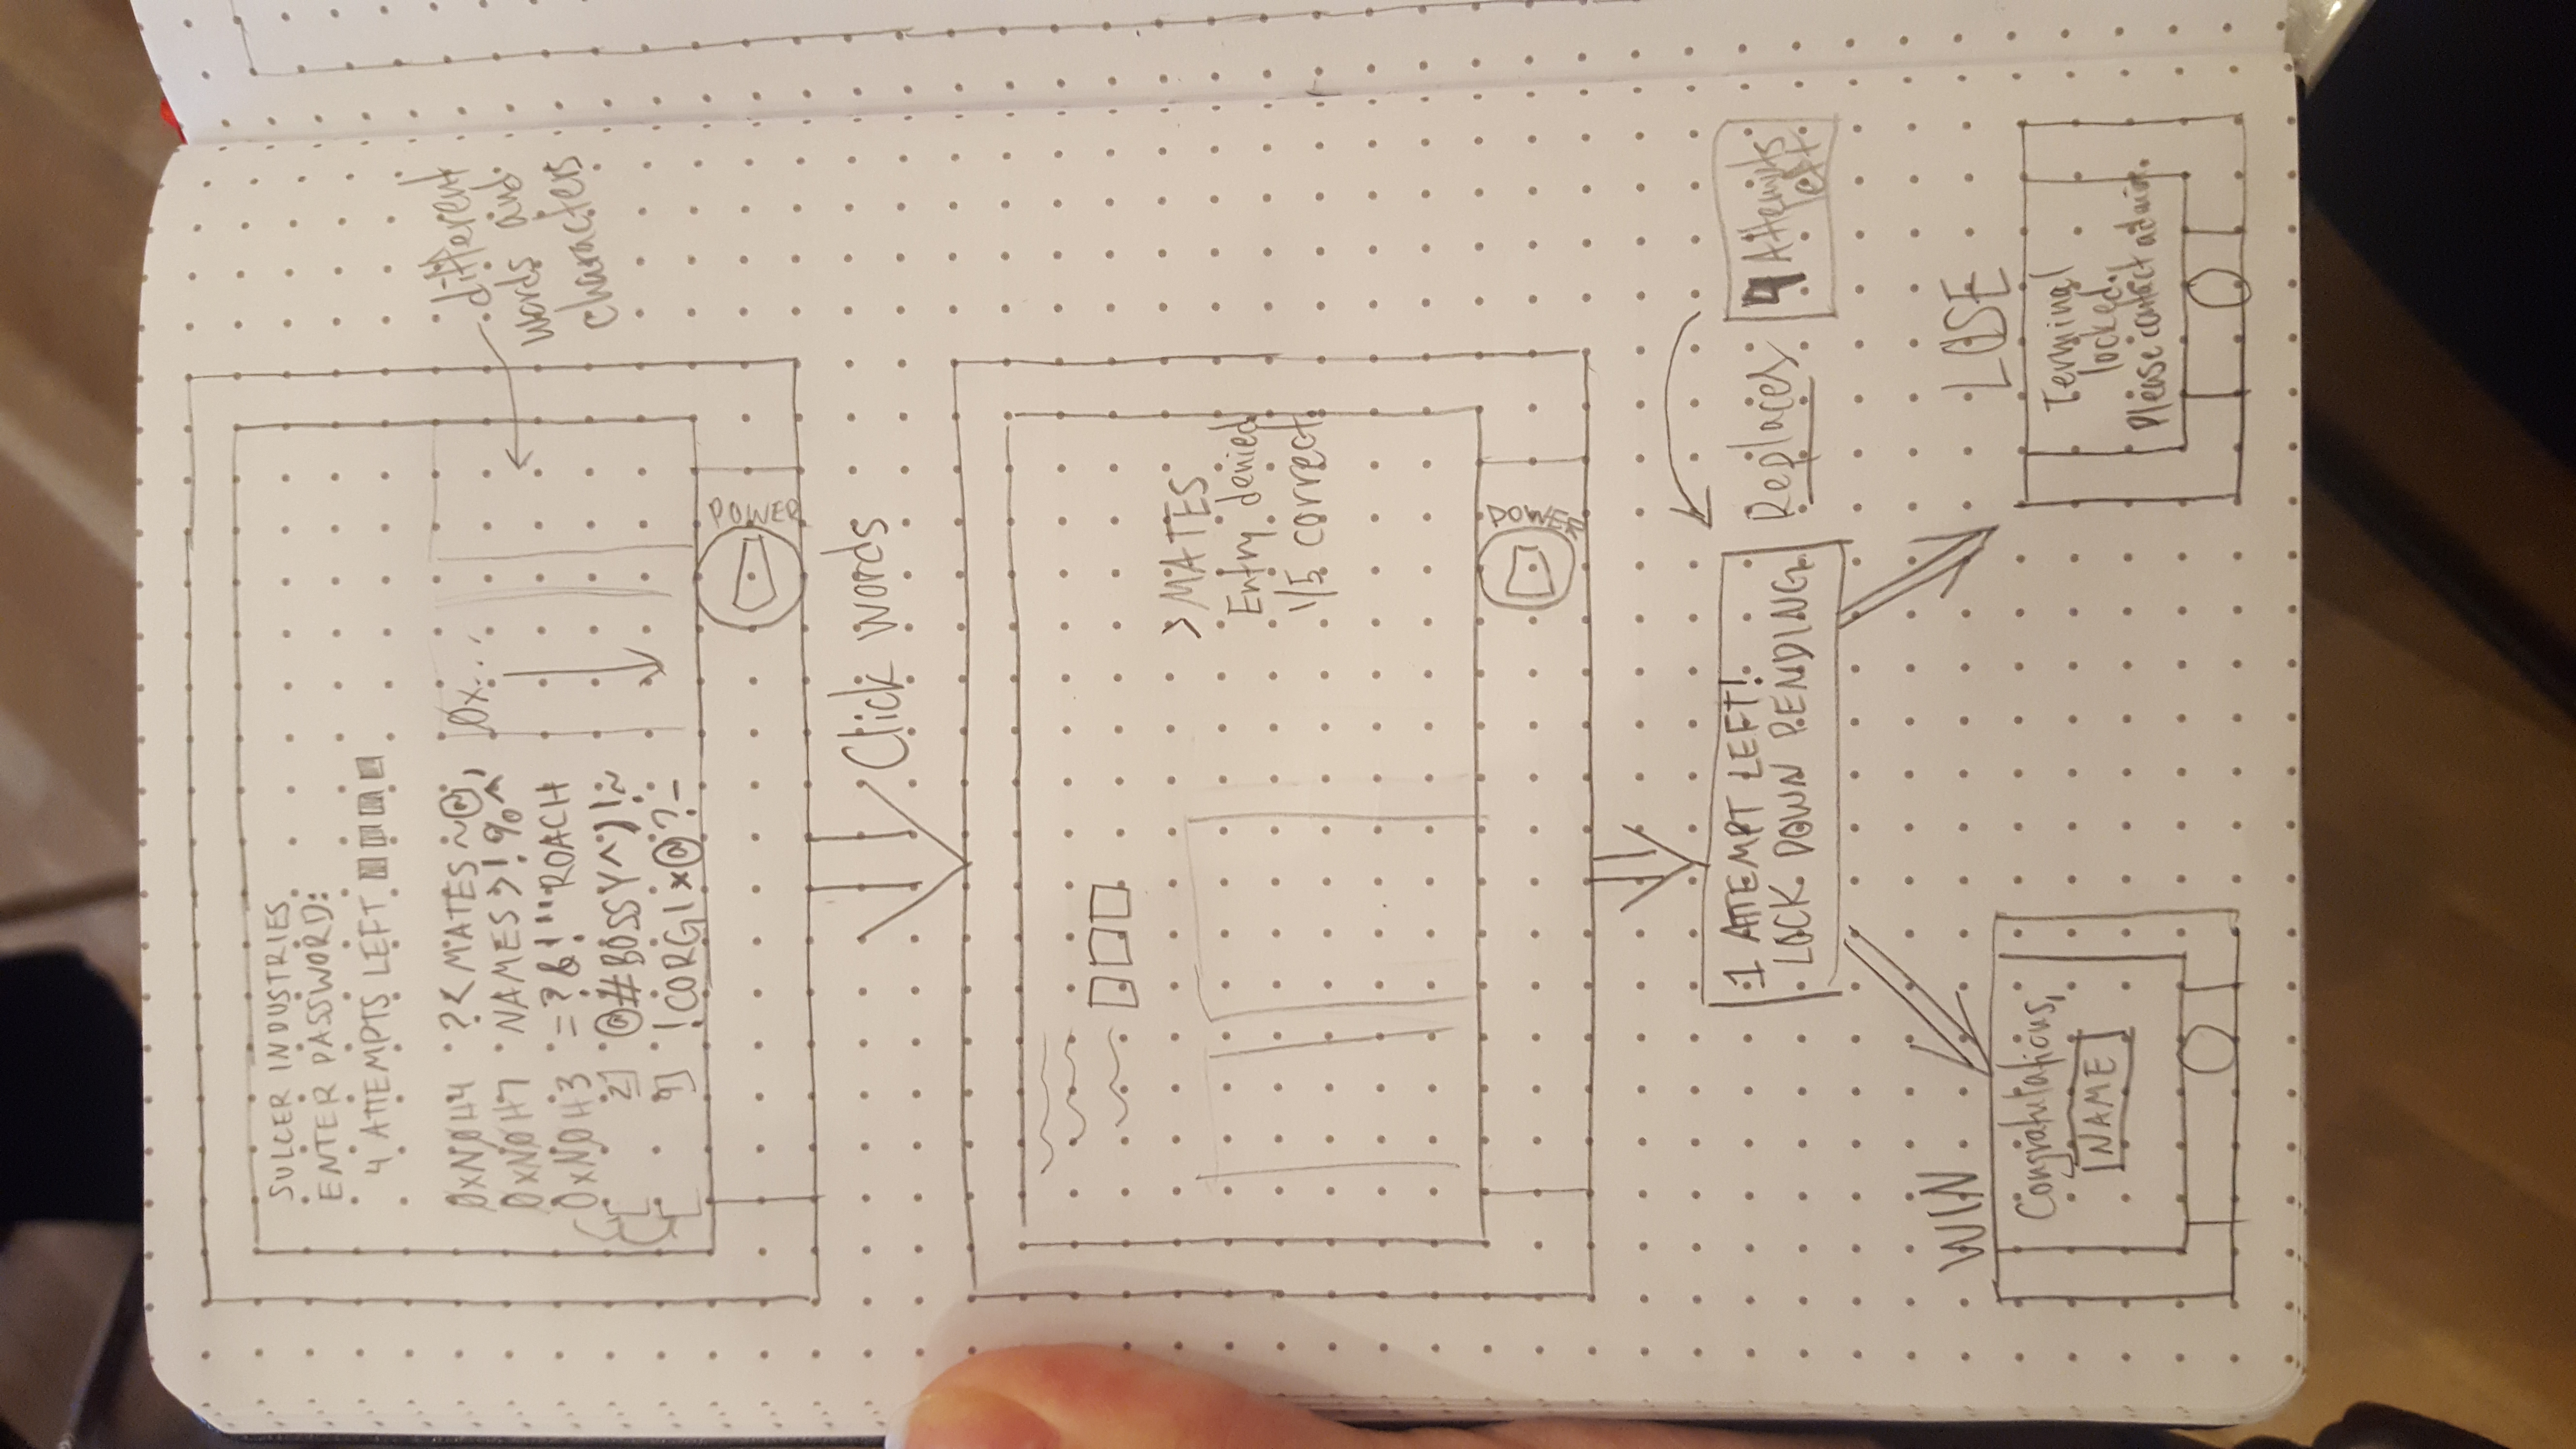 SULCER INDUSTRIES
ENTER PASSWORD:
4 ATTEMPTS LEFT
0xN0H4 ?<MATES~@,
0xN0H7 NAMES>!%^
0xN0H3 =?&!"ROACH
[ 2] @#BOSSY^)!~
[ 9] !CORGI×@?-
0x...
different
words and
characters
POWER
Click words
>MATES
Entry denied
1/5 correct
POWER
1 ATTEMPT LEFT!
LOCK DOWN PENDING
Replaces
4 Attempts
left
WIN
Congratulations,
NAME
LOSE
Terminal
locked.
Please contact admin.